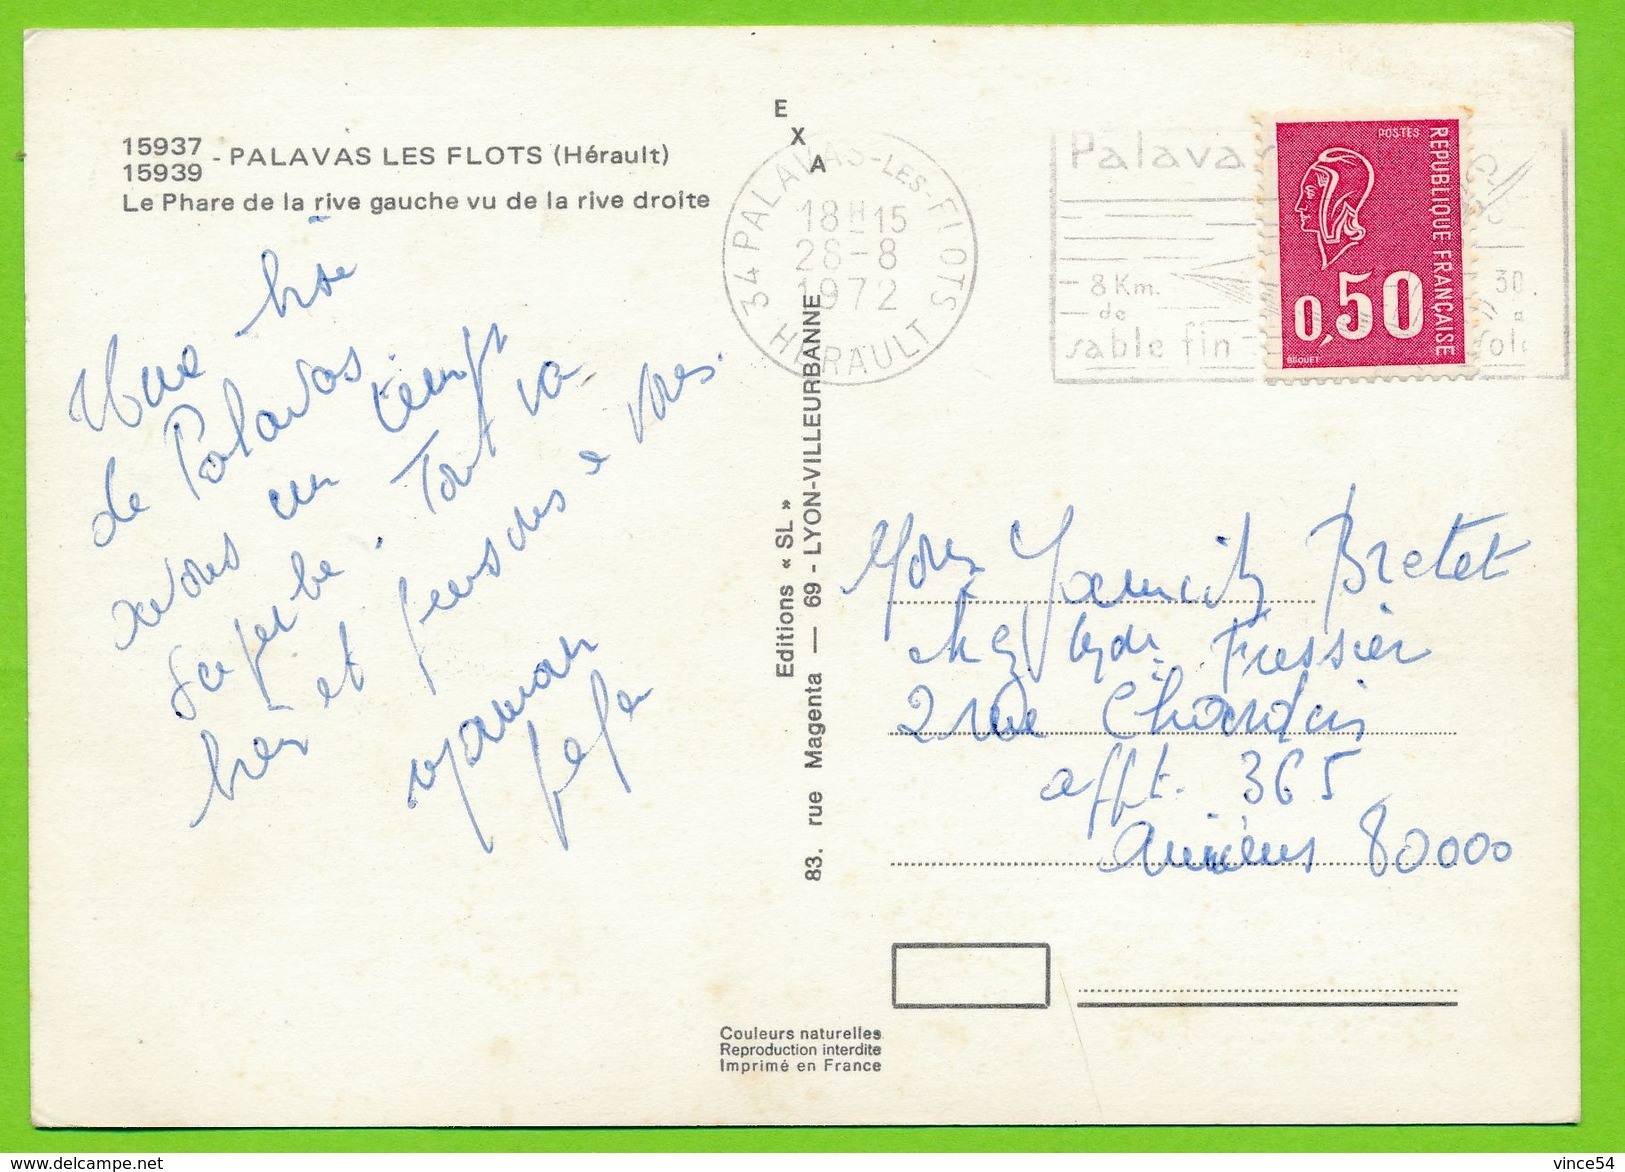 15937
15939 - PALAVAS LES FLOTS (Hérault)
Le Phare de la rive gauche vu de la rive droite
Une
de Palavas
avons un temps
superbe. Tout va
bien et pensons à vous.
maman
EXA
Editions « SL »
83. rue Magenta — 69 - LYON-VILLEURBANNE
34 PALAVAS-LES-FLOTS
18H15
28-8
1972
HÉRAULT
Palavas
8 Km.
de
sable fin
30.
POSTES
REPUBLIQUE FRANÇAISE
0,50
BEQUET
Bretet
Fressier
2 rue Chardin
appt. 365
Amiens 80000
Couleurs naturelles
Reproduction interdite
Imprimé en France
vince54